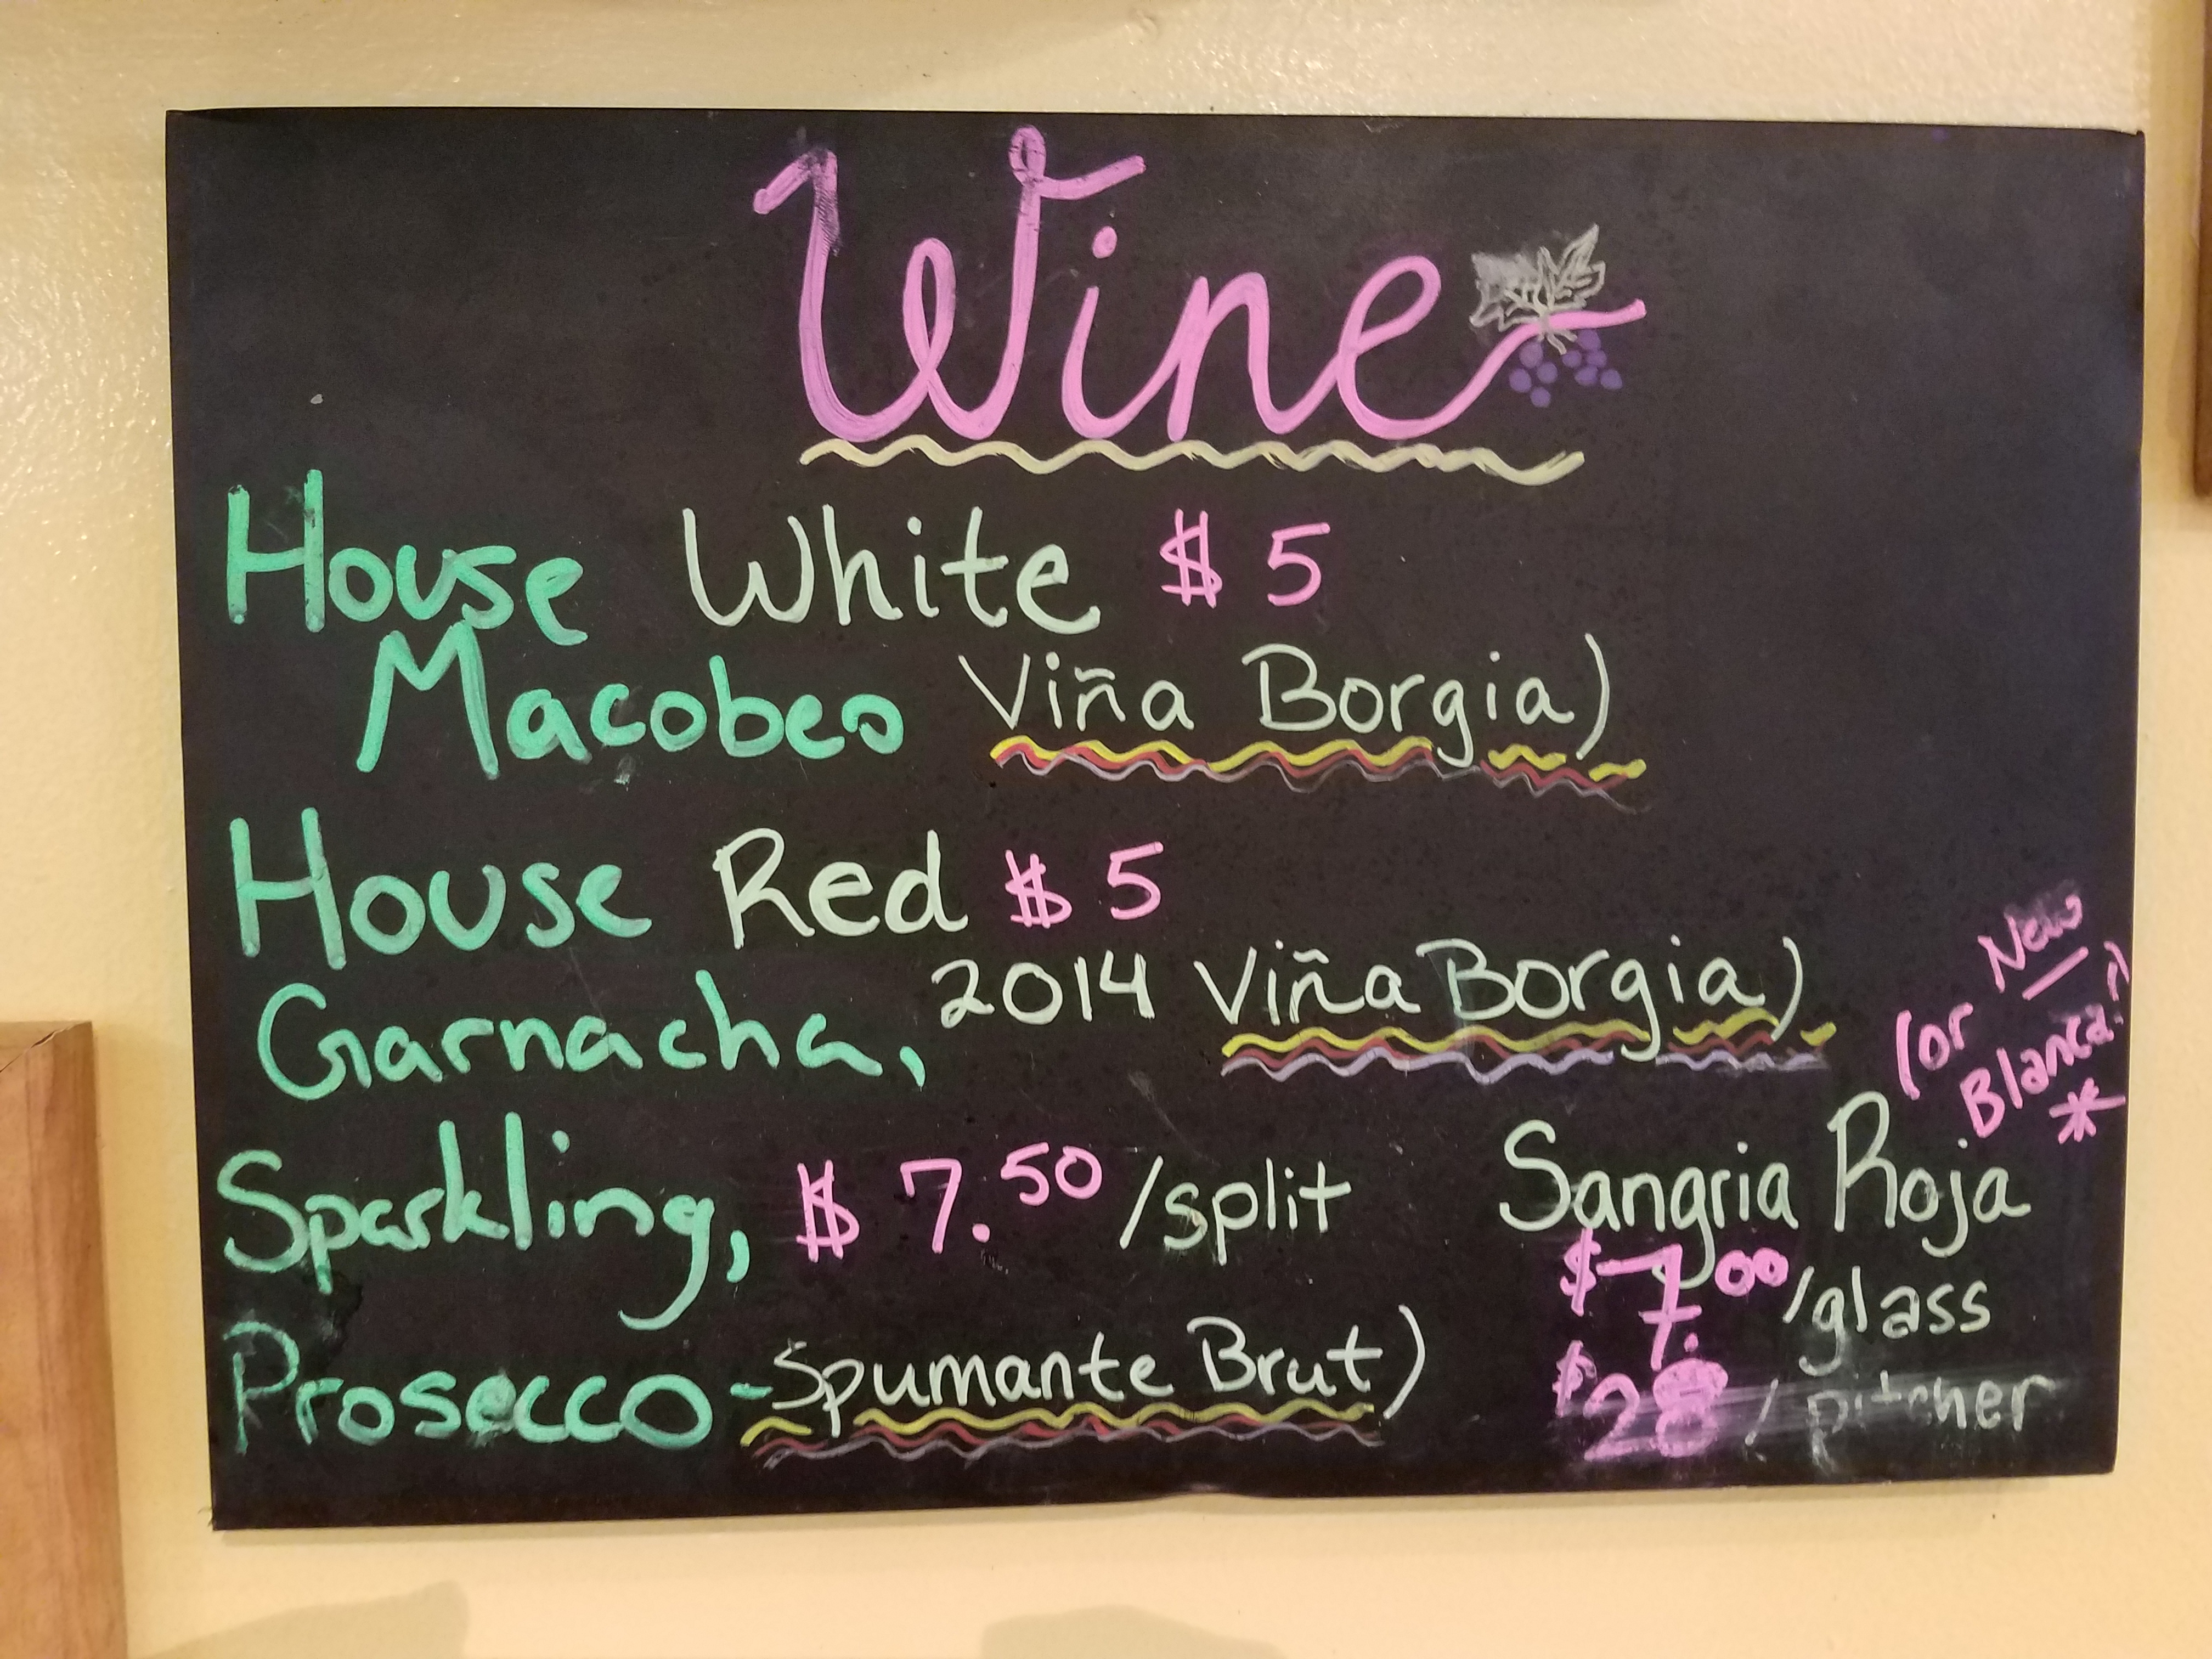 Wine
House White $ 5
Macobeo Viña Borgia)
House Red $ 5
Garnacha, 2014 Viña Borgia)
Sparkling, $ 7.50 /split
Prosecco - Spumante Brut)
New
(or Blanca!)
*
Sangria Roja
$7.00 /glass
$28 / pitcher